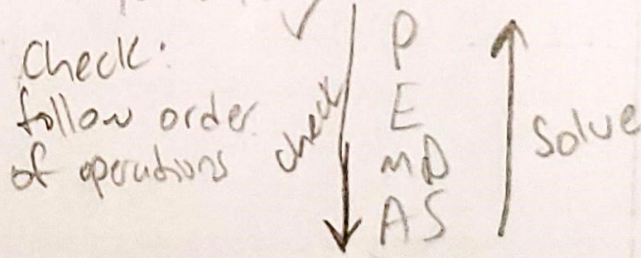 Check:
follow order
of operations
check
P
E
MD
AS
Solve